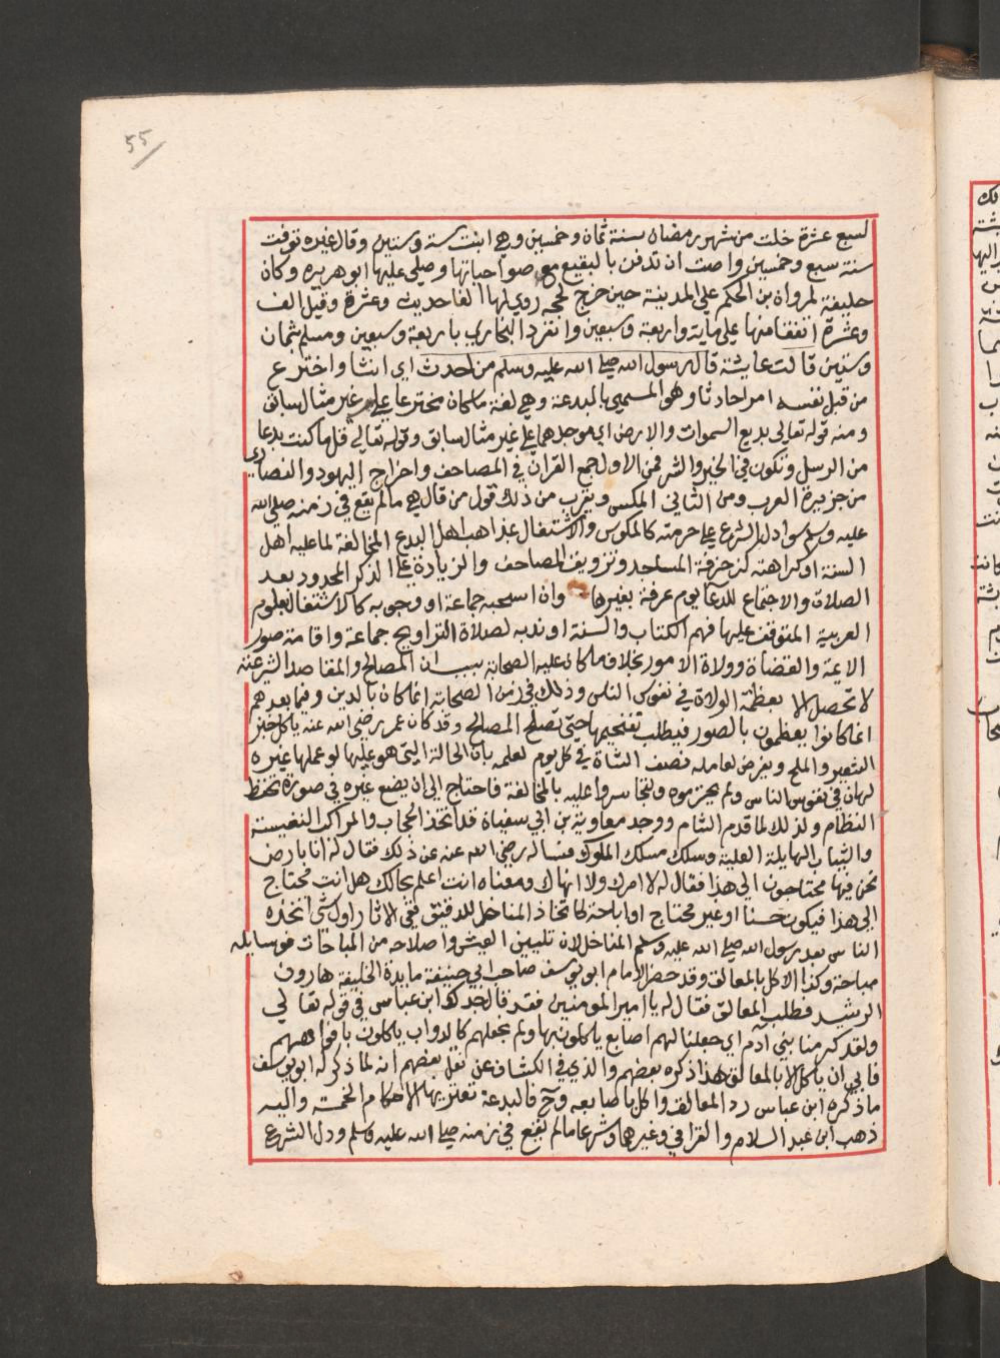 55
لسبع عشرة خلت من شهر رمضان سنة ثمان وخمسين وهي ابنت ستة وستين وقال غيره توفت
سنة سبع وخمسين واصت ان تدفن بالبقيع مع صواحباتها وصلي عليها ابو هريره وكان
خليفة لمروان بن الحكم علي المدينة حين خرج لحجه روي لها الفا حديث وعشرة وقيل الف
وعشرة اتفقا منها علي ماية واربعة وسبعين وانفرد البخاري باربعة وسبعين ومسلم بثمان
وستين قالت عايشة قال رسول الله صلي الله عليه وسلم من احدث اي انشا واخترع
من قبل نفسه امرا حادثا وهو المسمي بالبدعة وهي لغة ما كان مخترعا علي غير مثال سابق
ومنه قوله تعالي بديع السموات والارض اي موجدهما علي غير مثال سابق وقوله تعالي قل ما كنت بدعا
من الرسل وتكون في الخير والشر فمن الاول جمع القران في المصاحف واخراج اليهود والنصاري
من جزيرة العرب ومن الثاني المكس ويقرب من ذلك قول من قال هي مالم يقع في زمنه صلي الله
عليه وسلم سوا دل الشرع علي حرمته كالمكوس والاشتغال بمذاهب اهل البدع المخالفة لما عليه اهل
السنة او كراهته كزخرفة المساجد وتزويق المصاحف والزيادة علي الذكر المحدود بعد
الصلاة والاجتماع للدعا يوم عرفة بغيرها وان استحبه جماعة او وجوبه كالاشتغال بعلوم
العربية المتوقف عليها فهم الكتاب والسنة او ندبه لصلاة التراويح جماعة واقامة صور
الايمة والقضاة وولاة الامور بخلاف ما كان عليه الصحابة بسبب ان المصالح والمقاصد الشرعية
لا تحصل الا بعظمة الولاة في نفوس الناس وذلك في زمن الصحابة انما كان بالدين وفيما بعدهم
انما كانوا يعظمون بالصور فيطلب تفخيمها حتي تصلح المصالح وقد كان عمر رضي الله عنه ياكل خبز
الشعير والملح ويفرض لعامله نصف الشاة في كل يوم لعلمه بان الحالة التي هو عليها لو عملها غيره
لهان في نفوس الناس ولم يحترموه وتجاسروا عليه بالمخالفة فاحتاج الي ان يضع غيره في صورة تحفظ
النظام ولذلك لما قدم الشام ووجد معاوية بن ابي سفيان قد اتخذ الحجاب والمراكب النفيسة
والثياب الهايلة العلية وسلك مسلك الملوك فساله رضي الله عنه عن ذلك فقال له انا بارض
نحن فيها محتاجون الي هذا فقال له لا امرك ولا انهاك ومعناه انت اعلم بحالك هل انت محتاج
الي هذا فيكون حسنا او غير محتاج او اباحة كاتخاذ المناخل للدقيق ففي الاثار اول شي اتخذه
الناس بعد رسول الله صلي الله عليه وسلم المناخل لان تليين العيش واصلاحه من المباحات فوسايله
مباحة وكذا الاكل بالمعالق وقد حضر الامام ابو يوسف صاحب ابي حنيفة مايدة الخليفة هارون
الرشيد فطلب المعالق فقال له يا امير المومنين فقد قال جدك ابن عباس في قوله تعالي
ولقد كرمنا بني آدم اي جعلنا لهم اصابع ياكلون بها ولم نجعلهم كالدواب ياكلون بافواههم
فابي ان ياكل الا بالمعالق هذا ذكره بعضهم والذي في الكشاف عن نقل بعضهم انه لما ذكر له ابو يوسف
ما ذكره ابن عباس رد المعالق واكل باصابعه وح فالبدعة تعتريها الاحكام الخمسة واليه
ذهب ابن عبد السلام والقرافي وغيرهما وشرعا مالم تقع في زمنه صلي الله عليه وسلم ودل الشرع